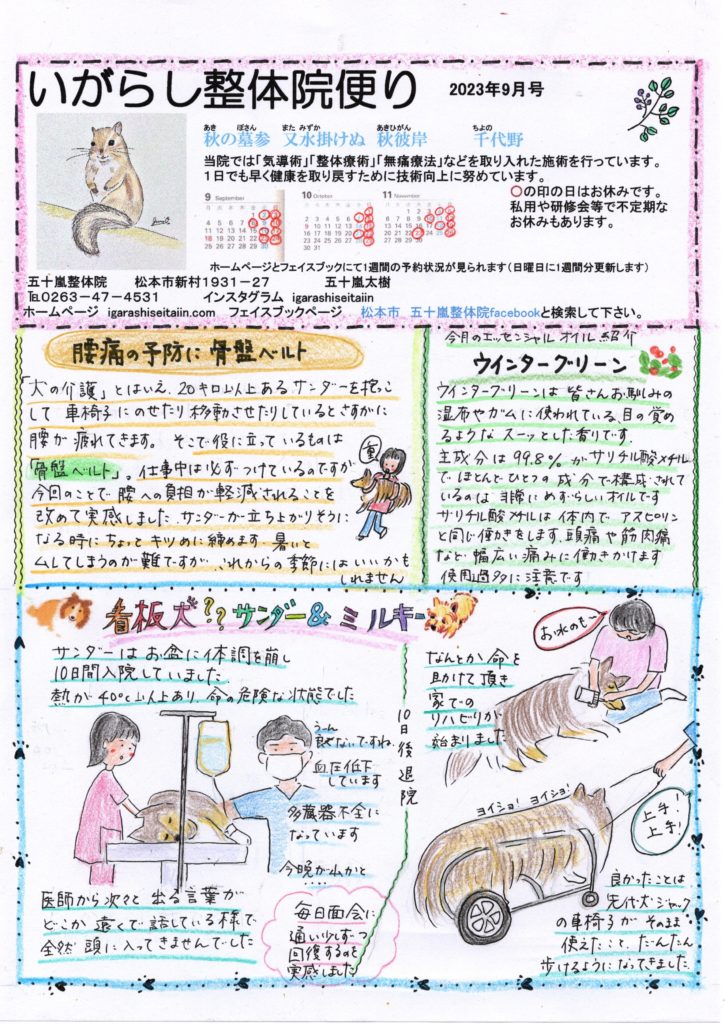 いがらし整体院便り 2023年9月号
あき ぼさん また みずか あきひがん ちよの
秋の墓参 又水掛けぬ 秋彼岸 千代野
当院では「気導術」「整体療術」「無痛療法」などを取り入れた施術を行っています。
1日でも早く健康を取り戻すために技術向上に努めています。
9 September
10 October
11 November
〇の印の日はお休みです。
私用や研修会等で不定期な
お休みもあります。
ホームページとフェイスブックにて1週間の予約状況が見られます(日曜日に1週間分更新します)
五十嵐整体院 松本市新村1931-27 五十嵐太樹
℡0263-47-4531 インスタグラム igarashiseitaiin
ホームページ igarashiseitaiin.com フェイスブックページ 松本市 五十嵐整体院facebookと検索して下さい。
腰痛の予防に骨盤ベルト
「犬の介護」とはいえ、20キロ以上あるサンダーを抱っこ
して車椅子にのせたり移動させたりしているとさすがに
腰が疲れてきます。そこで役に立っているものは
「骨盤ベルト」。仕事中は必ずつけているのですが
今回のことで腰への負担が軽減されることを
改めて実感しました。サンダーが立ち上がりそうに
なる時にちょっとキツめに締めます。暑いと
ムレてしまうのが難ですが、これからの季節にはいいかも
しれません
重
今月のエッセンシャルオイル紹介
ウインターグリーン
ウインターグリーンは皆さんお馴みの
湿布やガムに使われている目の覚め
るようなスーッとした香りです。
主成分は99.8%がサリチル酸メチル
でほとんどひとつの成分で構成されて
いるのは非常にめずらしいオイルです
サリチル酸メチルは体内でアスピリン
と同じ働きをします。頭痛や筋肉痛
など幅広い痛みに働きかけます
使用過多に注意です
看板犬??サンダー&ミルキー
サンダーはお盆に体調を崩し
10日間入院していました
熱が40℃以上あり、命の危険な状態でした
うーん
良くないですね
血圧低下
しています
多臓器不全に
なっています
今晩が山かと
‥‥
医師から次々と出る言葉が
どこか遠くで話している様で
全然頭に入ってきませんでした
毎日面会に
通い少しずつ
回復するのを
実感しました
10日後退院
なんとか命を
助けて頂き
家での
リハビリが
始まりました
お水のも〜
ヨイショ! ヨイショ!
上手!
上手!
良かったことは
先代犬ジャック
の車椅子がそのまま
使えたこと、だんだん
歩けるようになってきました